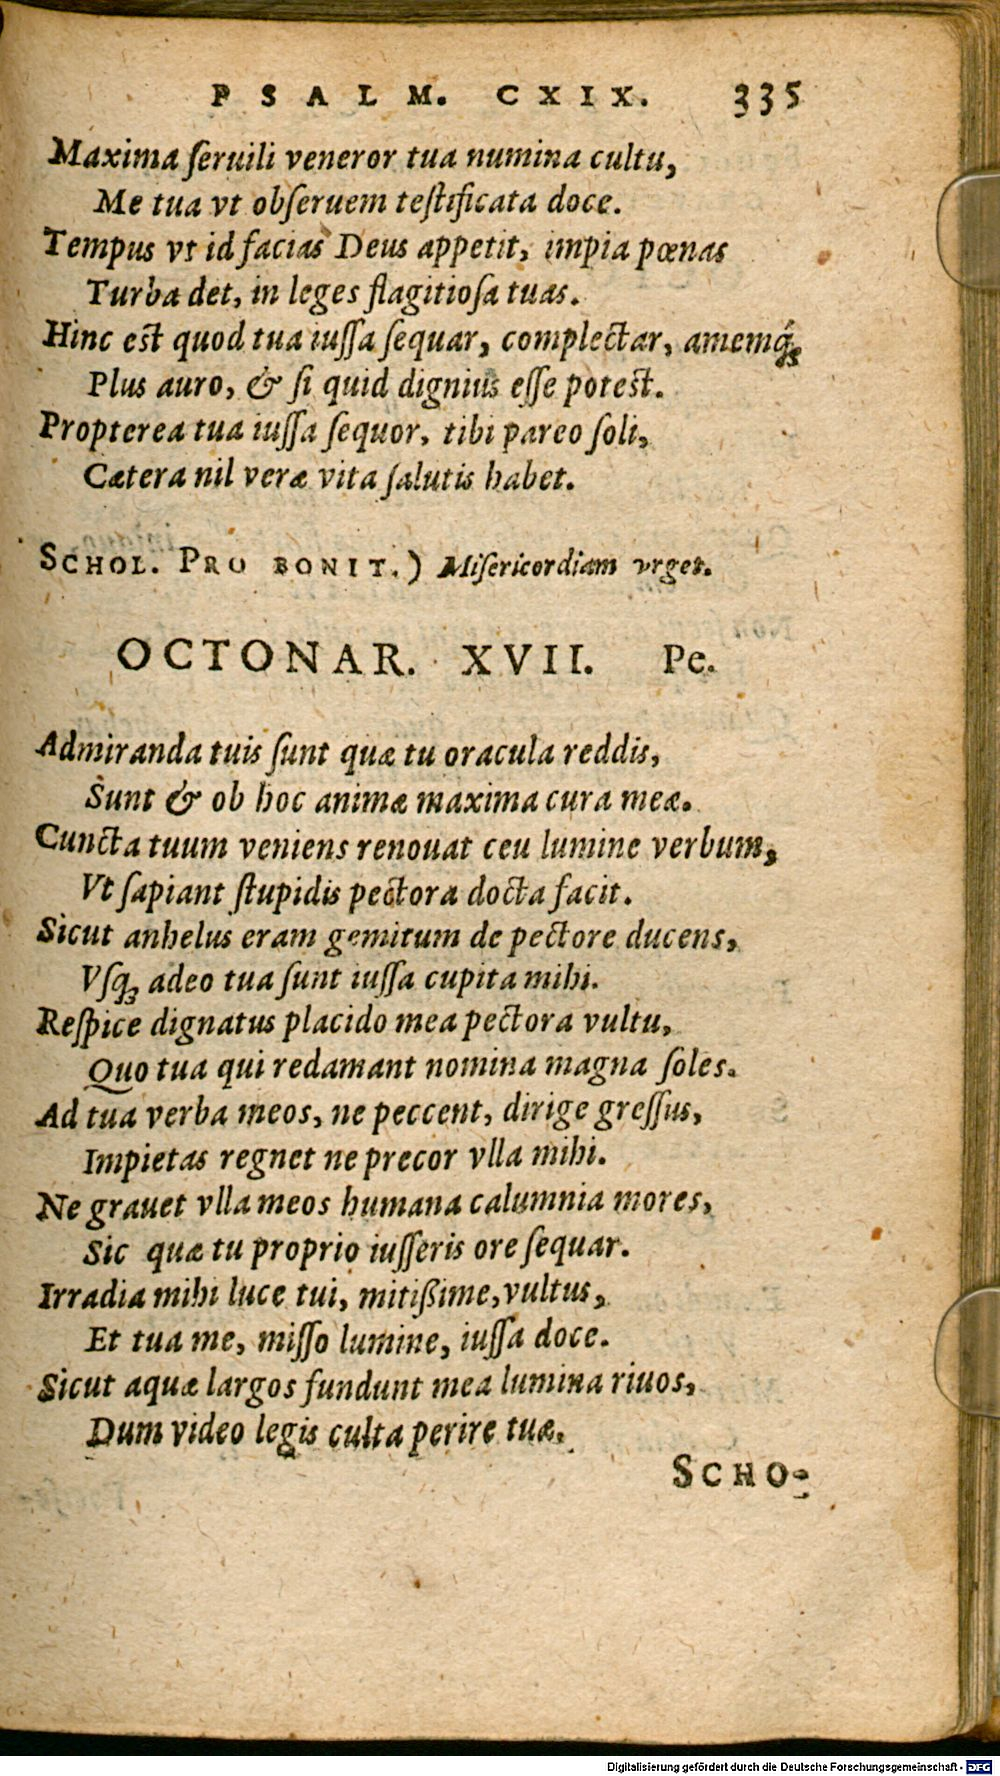 PSALM. CXIX. 335
Maxima ſeruili veneror tua numina cultu,
Me tua vt obſeruem teſtificata doce.
Tempus vt id facias Deus appetit, impia pœnas
Turba det, in leges flagitioſa tuas.
Hinc eſt quod tua iuſſa ſequar, complectar, amemq́;
Plus auro, & ſi quid dignius eſſe poteſt.
Propterea tua iuſſa ſequor, tibi pareo ſoli,
Cætera nil veræ vita ſalutis habet.
SCHOL. PRO BONIT.) Miſericordiam vrget.
OCTONAR. XVII. Pe.
Admiranda tuis ſunt quæ tu oracula reddis,
Sunt & ob hoc animæ maxima cura meæ.
Cuncta tuum veniens renouat ceu lumine verbum,
Vt ſapiant ſtupidis pectora docta facit.
Sicut anhelus eram gemitum de pectore ducens,
Vſq; adeo tua ſunt iuſſa cupita mihi.
Reſpice dignatus placido mea pectora vultu,
Quo tua qui redamant nomina magna ſoles.
Ad tua verba meos, ne peccent, dirige greſſus,
Impietas regnet ne precor vlla mihi.
Ne grauet vlla meos humana calumnia mores,
Sic quæ tu proprio iuſſeris ore ſequar.
Irradia mihi luce tui, mitißime, vultus,
Et tua me, miſſo lumine, iuſſa doce.
Sicut aquæ largos fundunt mea lumina riuos,
Dum video legis culta perire tuæ.
SCHO-
Digitalisierung gefördert durch die Deutsche Forschungsgemeinschaft - DFG